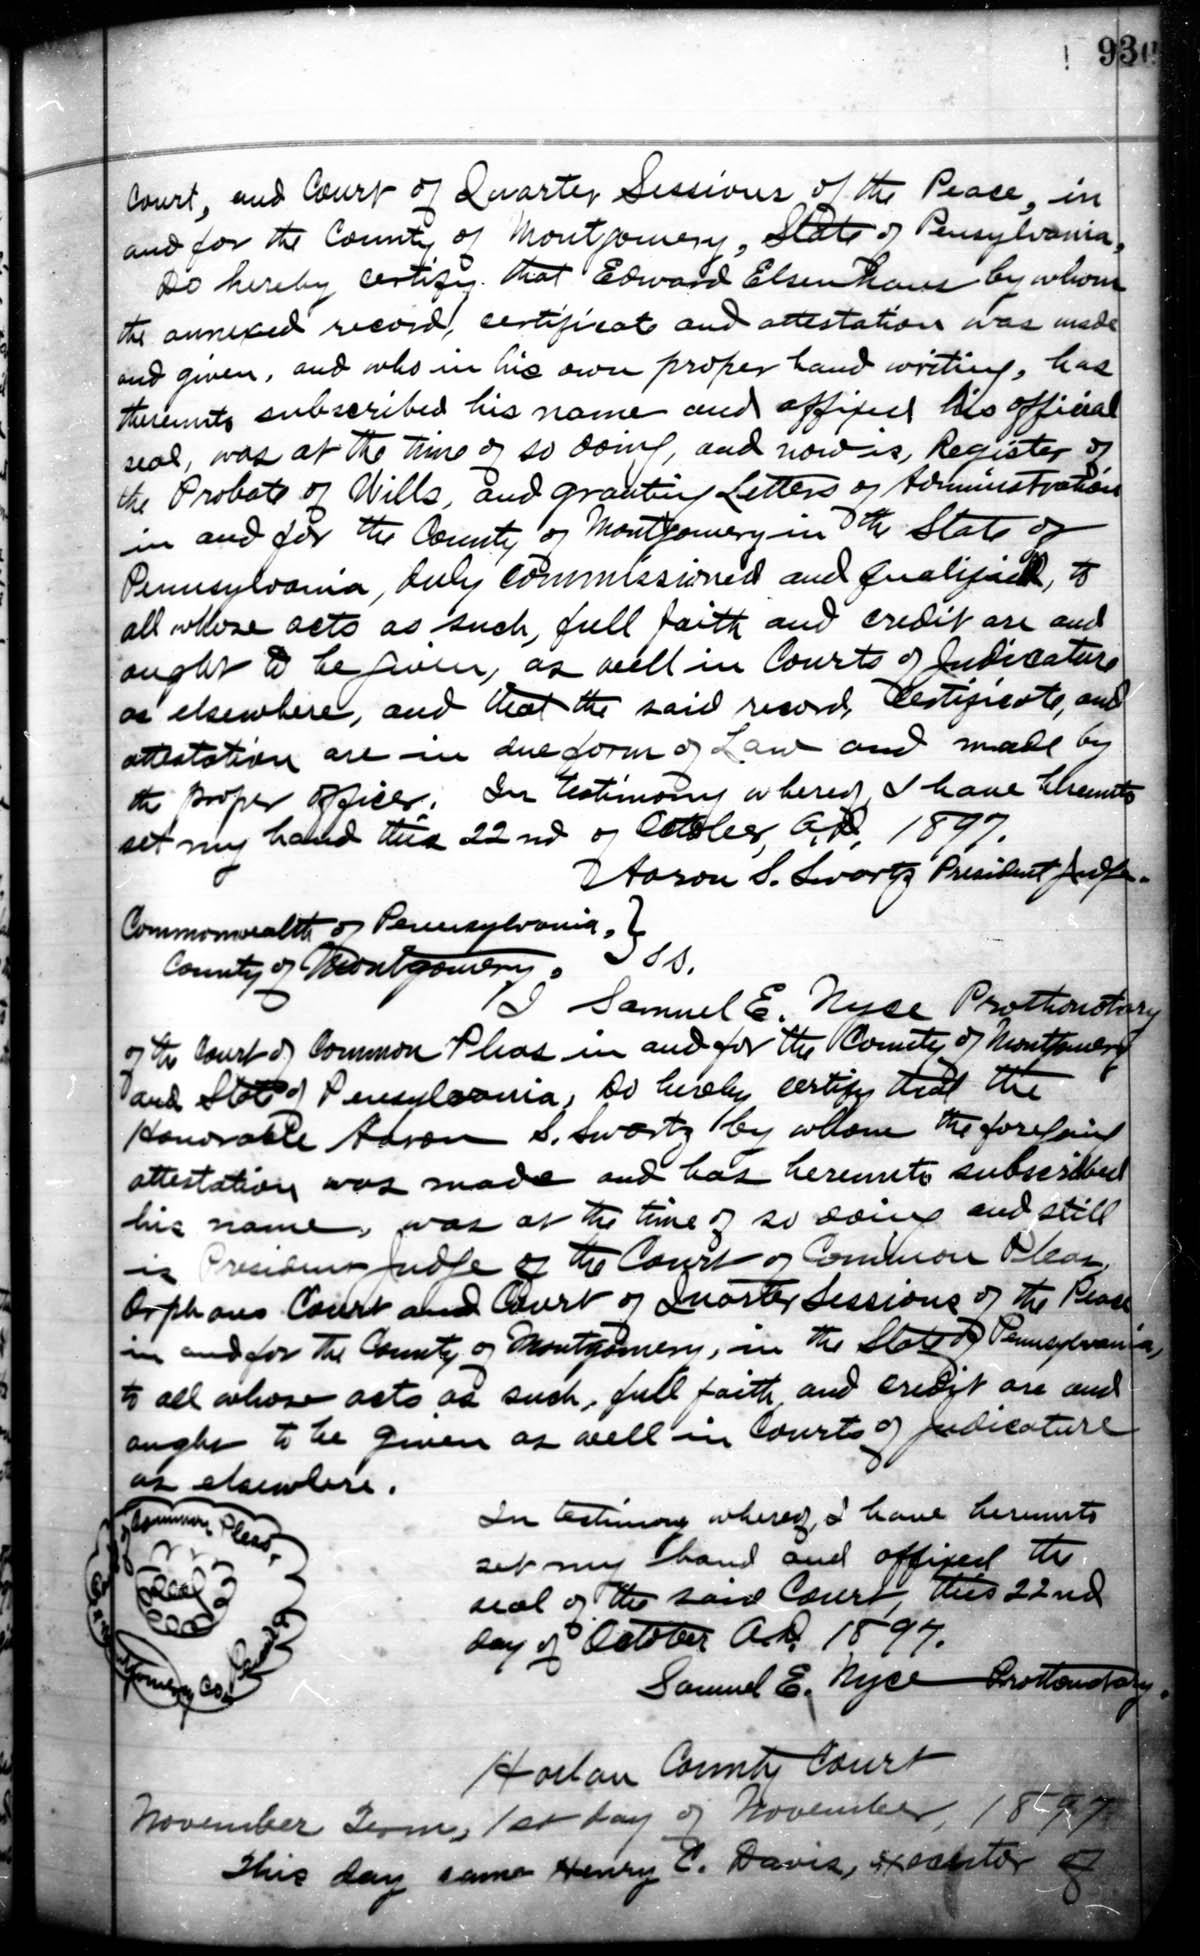 93
Court, and Court of Quarter Sessions of the Peace, in
and for the County of Montgomery, State of Pensylvania,
Do hereby certify that Edward Elsenhans by whom
the annexed record, certificate and attestation was made
and given, and who in his own proper hand writing, has
thereunto subscribed his name and affixed his official
seal, was at the time of so doing, and now is, Register of
the Probate of Wills, and granting Letters of Administration
in and for the County of Montgomery in the State of
Pennsylvania, duly commissioned and qualified, to
all whose acts as such, full faith and credit are and
ought to be given, as well in Courts of Judicature
as elsewhere, and that the said record, certificate, and
attestation are in due form of Law and made by
the proper officer. In testimony whereof, I have hereunto
set my hand this 22nd of October, A.D. 1897.
Aaron S. Swartz President Judge.
Commonwealth of Pennsylvania, }
County of Montgomery. } SS.
I Samuel E. Nyce Prothonotary
of the Court of Common Pleas in and for the County of Montgomery
and State of Pensylvania, do hereby certify that the
Honorable Aaron S. Swartz by whom the foregoing
attestation was made and has hereunto subscribed
his name, was at the time of so doing and still
is President Judge of the Court of Common Pleas,
Orphans Court and Court of Quarter Sessions of the Peace
in and for the County of Montgomery, in the State of Pennsylvania,
to all whose acts as such, full faith and credit are and
ought to be given as well in Courts of Judicature
as elsewhere.
Common Pleas,
Seal
In testimony whereof, I have hereunto
set my hand and affixed the
seal of the said Court, this 22nd
day of October A.D. 1897.
Samuel E. Nyce Prothonotary.
Harlan County Court
November Term, 1st day of November, 1897
This day came Henry C. Davis, executor of